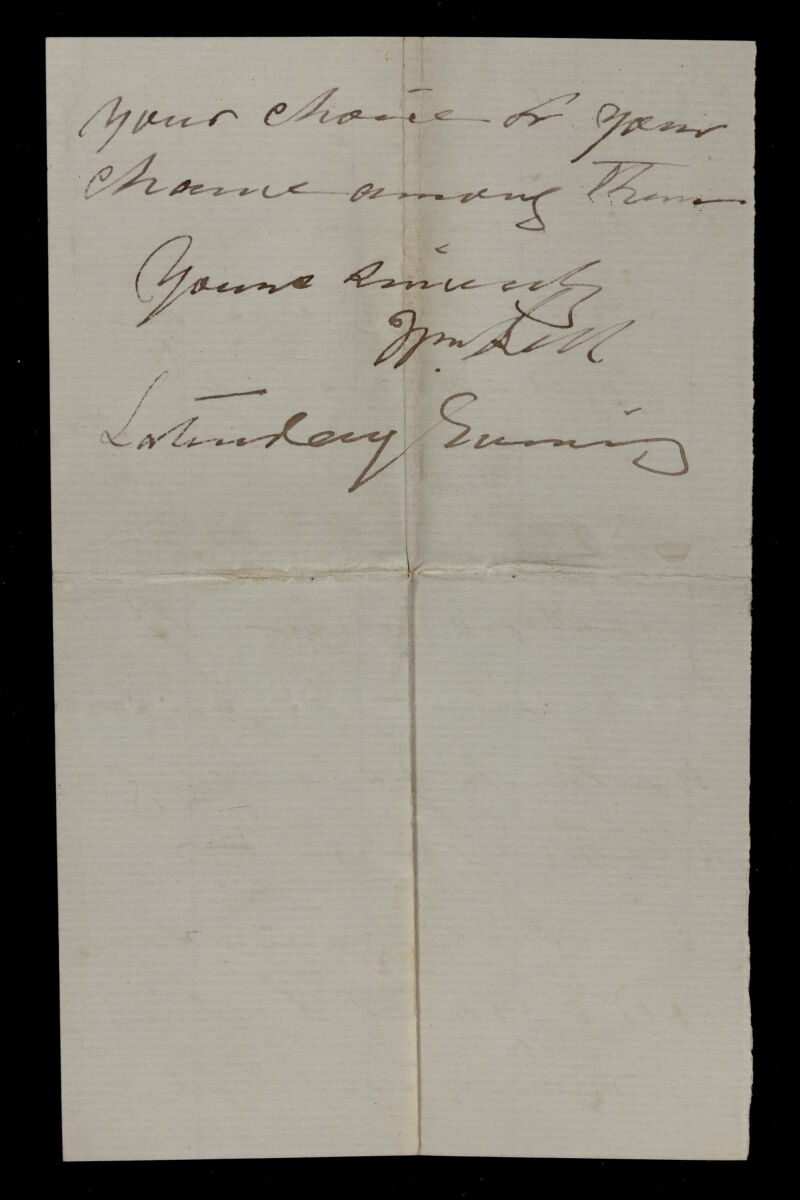 your choice or your
chance among them
Yours sincerely
Wm Bell
Saturday Evening